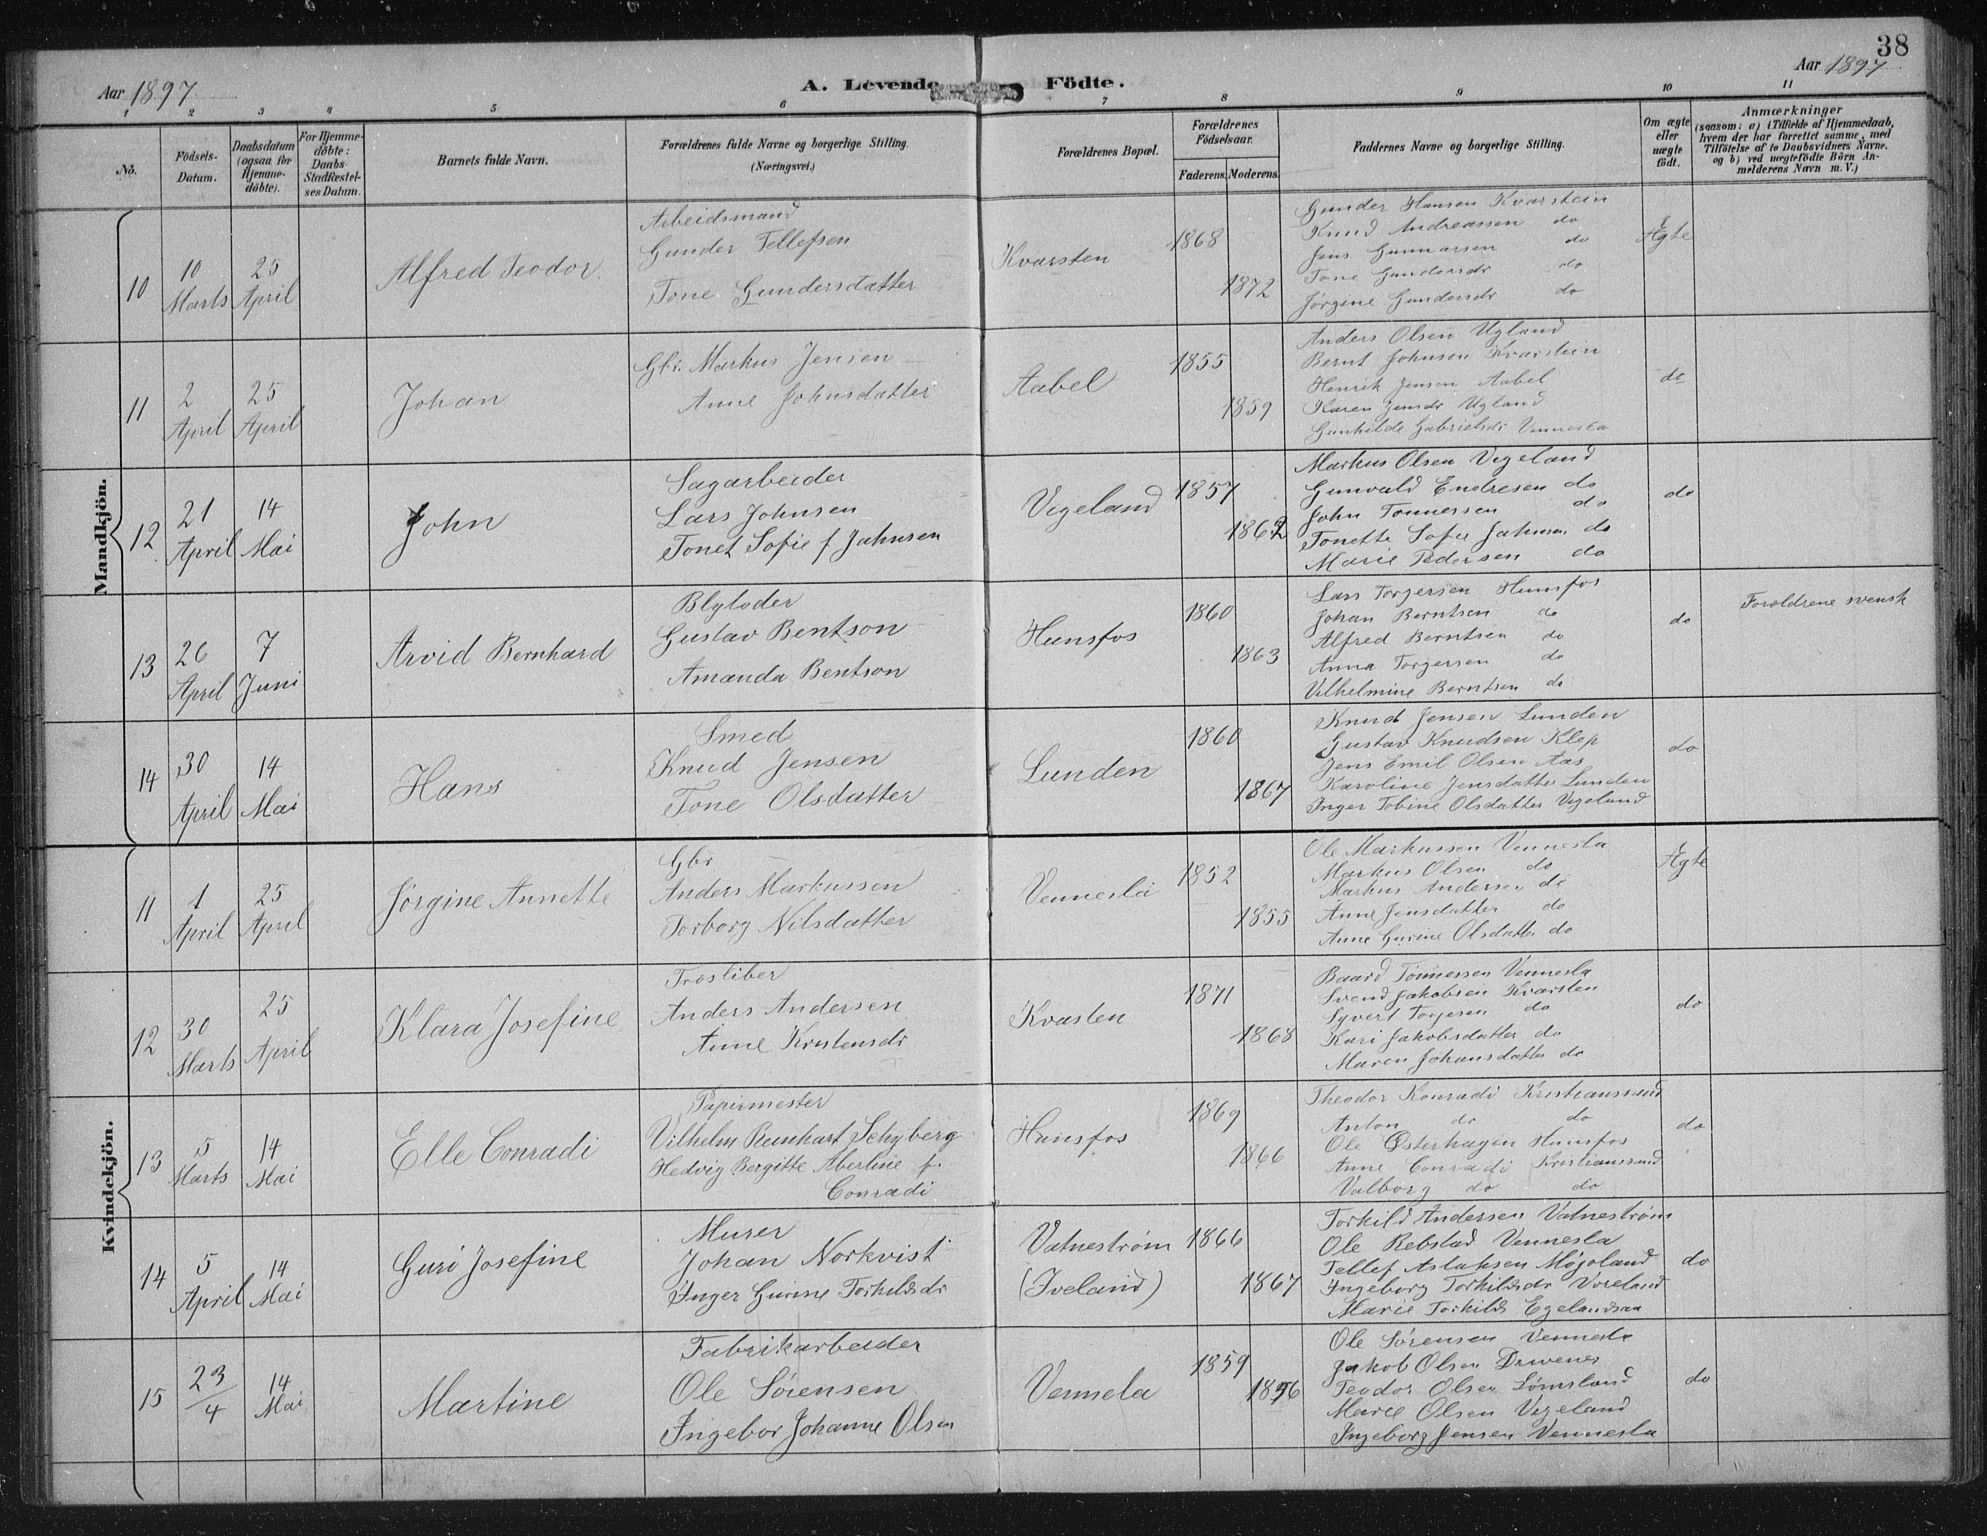 38
Aar 1897
A. Levende Födte.
Aar 1897
1 2 3 4 5 6 7 8 9 10 11
No.
Födsels-Datum.
Daabsdatum (ogsaa for Hjemme-döbte).
For Hjemme-döbte: Daabs-Stadfæstel-ses Datum.
Barnets fulde Navn.
Forældrenes fulde Navne og borgerlige Stilling.
(Næringsvei.)
Forældrenes Bopæl.
Forældrenes Födselsaar.
Faderens. Moderens.
Faddernes Navne og borgerlige Stilling.
Om ægte eller uægte födt.
Anmærkninger
(saasom: a) i Tilfælde af Hjemmedaab,
hvem der har forrettet samme, med
Tilföielse af to Daabsvidners Navne,
og b) ved uægtefödte Börn An-
melderens Navn m. V.)
Mandkjön.
10
10 Marts
25 April
Alfred Teodor.
Arbeidsmand
Gunder Tellefsen
Tone Gundersdatter
Kvarsten
1868
1872
Gunder Hansen Kvarstein
Knud Andreassen do
Jens Gunnarsen do
Tone Gundersdr do
Jørgine Gundersdr do
Ægte
11
2 April
25 April
Johan
Gbr. Markus Jensen
Anne Johnsdatter
Aabel
1855
1859
Anders Olsen Ugland
Bernt Johnsen Kvarstein
Henrik Jensen Aabel
Karen Jensdr Ugland
Gunhilde Gabrielsdr Vennesla
do
12
21 April
14 Mai
John
Sagarbeider
Lars Johnsen
Tonet Sofie f Jahnsen
Vigeland
1857
1862
Markus Olsen Vigeland
Gunvald Endresen do
John Tønnersen do
Tonette Sofie Jahnsen do
Marie Pedersen do
do
13
26 April
7 Juni
Arvid Bernhard
Blyloder
Gustav Bentson
Amanda Bentson
Hunsfos
1860
1863
Lars Torgersen Hunsfos
Johan Berntsen do
Alfred Berntsen do
Anna Torgersen do
Vilhelmine Berntsen do
do
Foroldrene svensk
14
30 April
14 Mai
Hans
Smed
Knud Jensen
Tone Olsdatter
Lunden
1860
1867
Knud Jensen Lunden
Gustav Knudsen Klep
Jens Emil Olsen Aas
Karoline Jensdatter Lunden
Inger Tobine Olsdatter Vigeland
do
Kvindekjön.
11
1 April
25 April
Jørgine Annette
Gbr
Anders Markussen
Torborg Nilsdatter
Vennesla
1852
1855
Ole Markussen Vennesla
Markus Olsen do
Markus Andersen do
Anne Jensdatter do
Anne Gurine Olsdatter do
Ægte
12
30 Marts
25 April
Klara Josefine
Træsliber
Anders Andersen
Anne Kristensdr
Kvasten
1871
1868
Baard Tønnessen Vennesla
Svend Jakobsen Kvarsten
Syvert Torjesen do
Kari Jakobsdatter do
Maren Johansdatter do
do
13
5 Marts
14 Mai
Elle Conradi
Papirmester
Vilhelm Reinhart Schyberg
Hedvig Bergitte Abertine f.
Conradi
Hunsfos
1869
1866
Theodor Konradi Kristianssund
Anton do do
Ole Østerhagen Hunsfos
Anne Conradi Kristianssund
Valborg do do
do
14
5 April
14 Mai
Guri Josefine
Murer
Johan Norkvist
Inger Gurine Torkildsdr
Vatneström
(Iveland)
1866
1867
Torkild Andersen Vatneström
Ole Rebstad Vennesla
Tellef Aslaksen Møjoland
Ingeborg Torkildsdr Voreland
Marie Torkilds Egelandsaa
do
15
23/4
14 Mai
Martine
Fabrikarbeider
Ole Sörensen
Ingebor Johanne Olsen
Vennela
1859
1856
Ole Sörensen Vennesla
Jakob Olsen Drivenes
Teodor Olsen Lömsland
Marie Olsen Vigeland
Ingeborg Jensen Vennesla
do